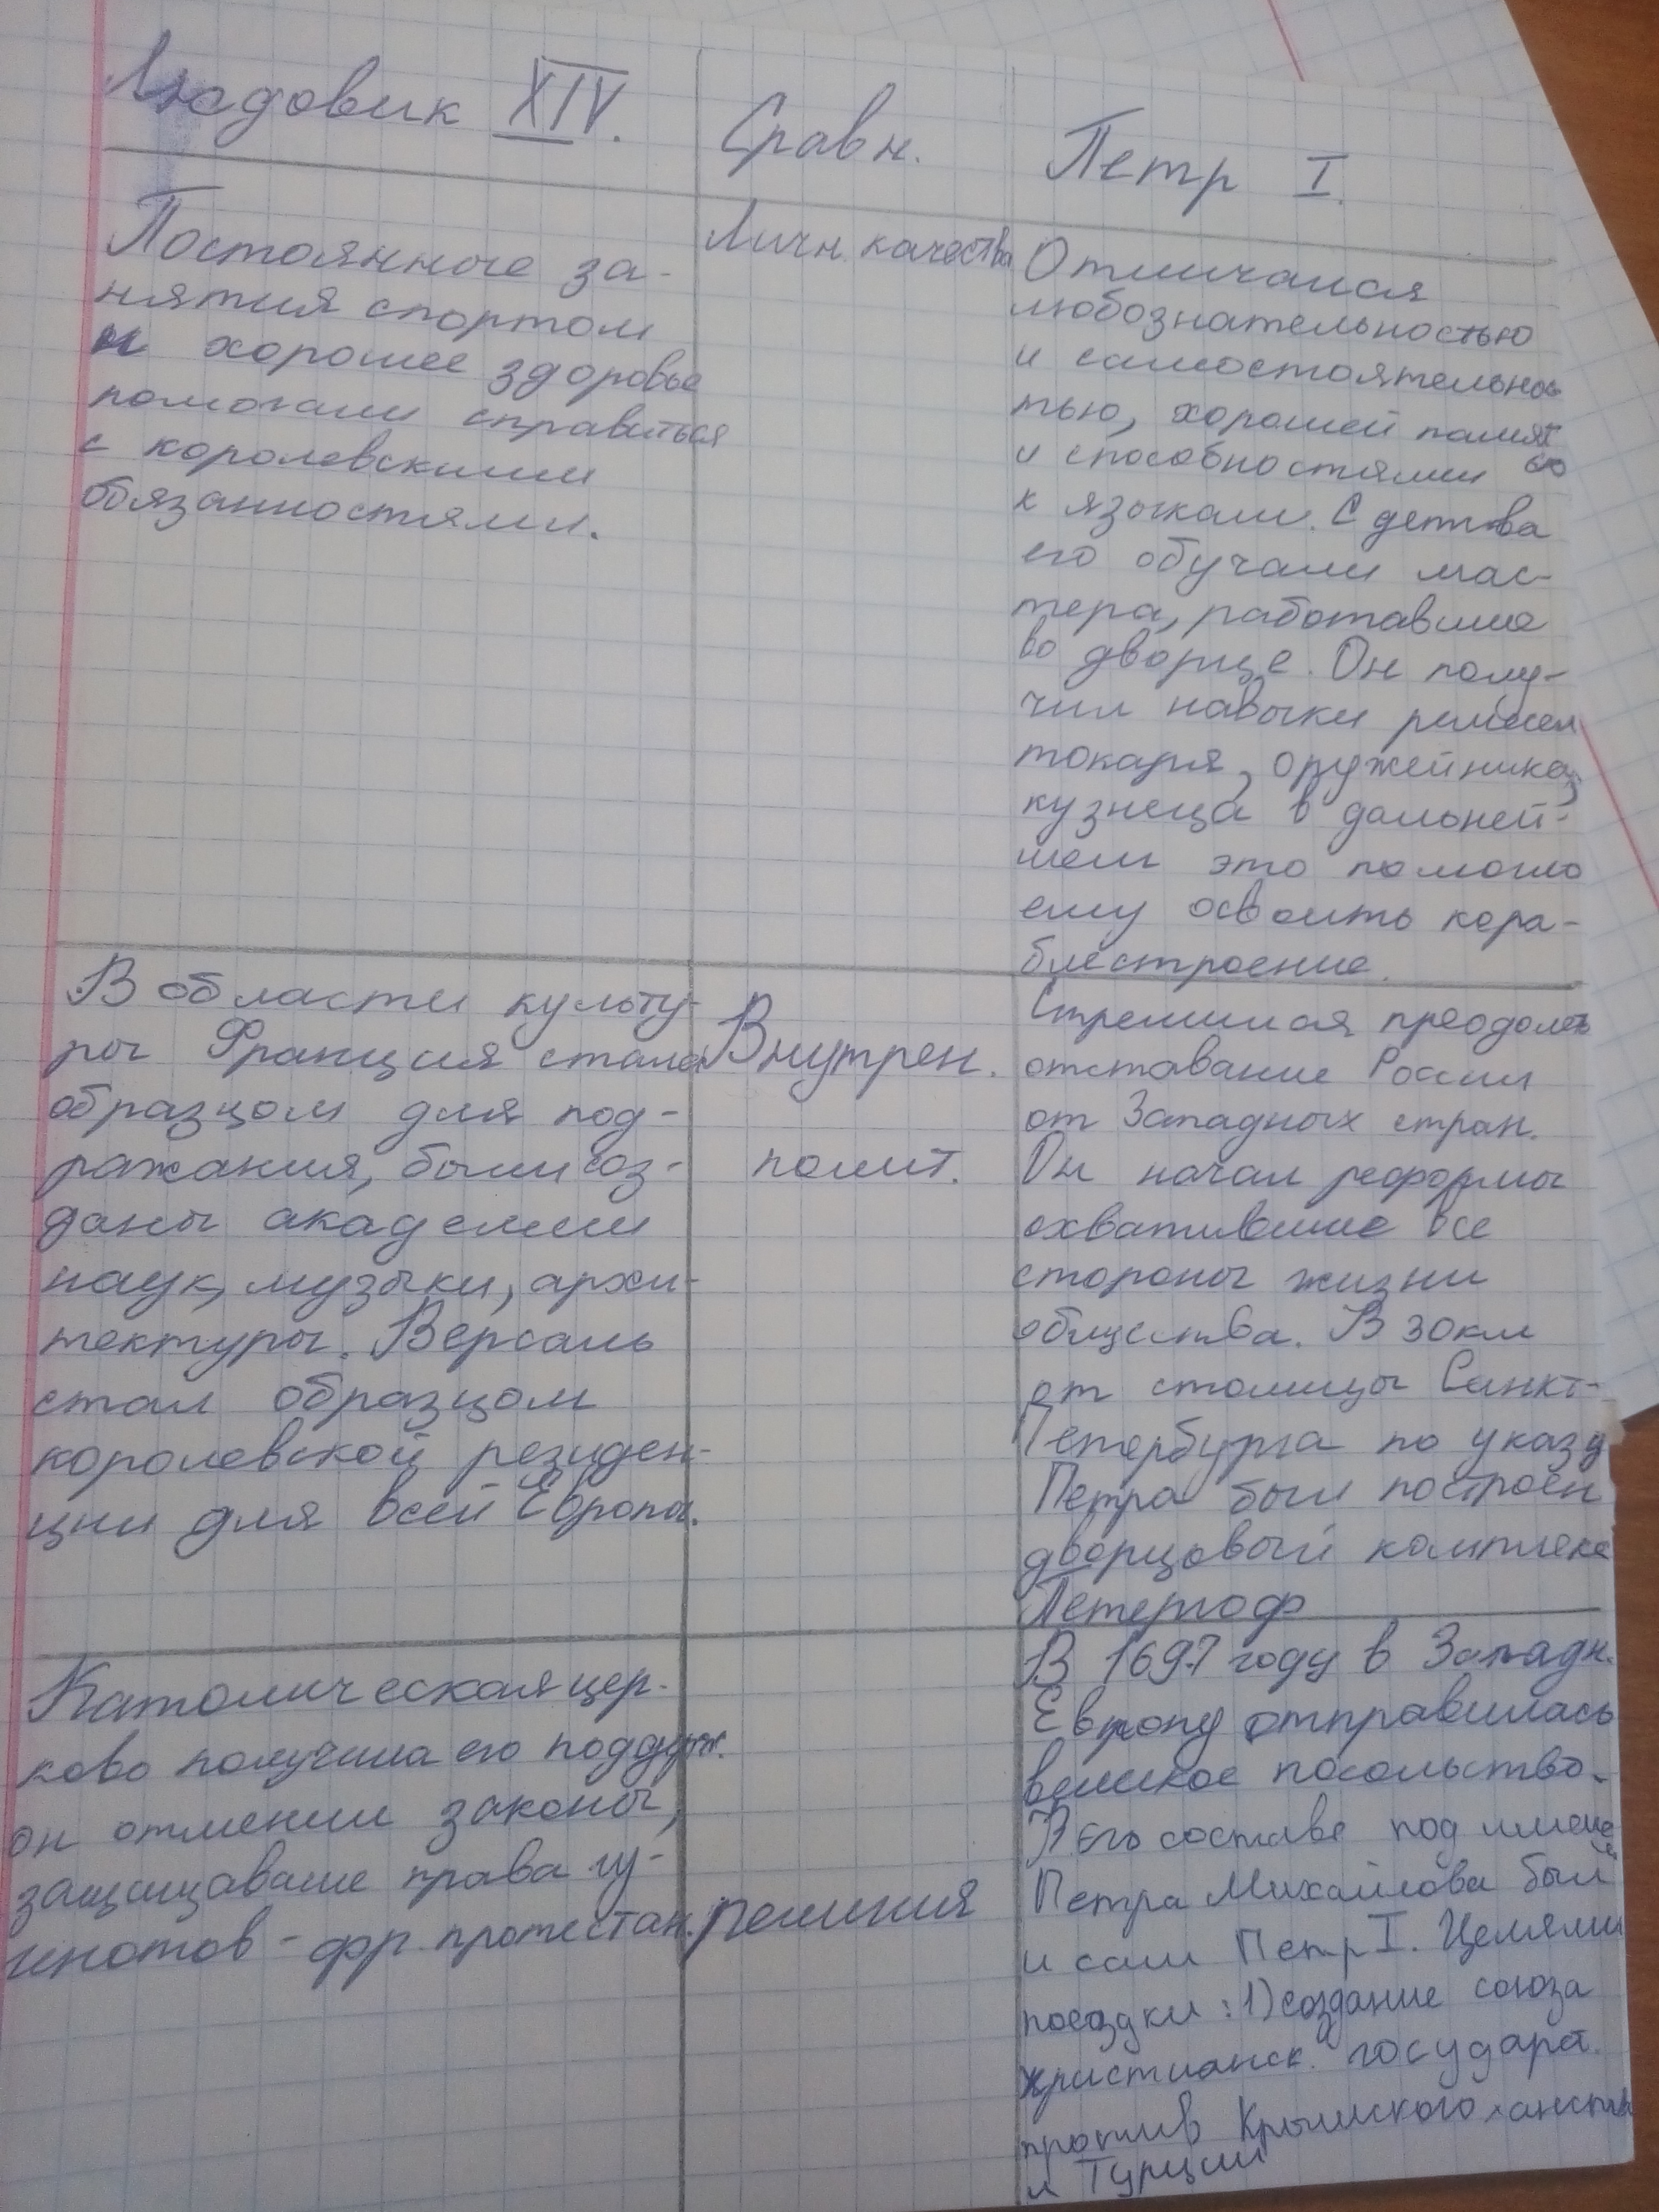 Людовик XIV.
Сравн.
Петр I.
Постоянные за-
нятия спортом
и хорошее здоровье
помогали справиться
с королевскими
обязанностями.
Личн. качества
Отличался
любознательностью
и самостоятельнос
тью, хорошей памят
ью
и способностями
к языкам. С детства
его обучали мас-
тера, работавшие
во дворце. Он полу-
чил навыки ремесел
токаря, оружейника,
кузнеца в дальней-
шем это помогло
ему освоить кора-
блестроение.
В области культу-
ры Франция стала
образцом для под-
ражания, были соз-
даны академии
наук, музыки, архи-
тектуры. Версаль
стал образцом
королевской резиден-
ции для всей Европы.
Внутрен.
полит.
Стремился преодолеть
отставание России
от Западных стран.
Он начал реформы
охватившие все
стороны жизни
общества. В 30км
от столицы Санкт-
Петербурга по указу
Петра был построен
дворцовый комплекс
Петергоф
Католическая цер-
ковь получила его поддерж.
он отменил законы,
защищавшие права гу-
генотов - фр. протестан.
религия
В 1697 году в Западн.
Европу отправилась
великое посольство.
В его составе под имене
м
Петра Михайлова был
и сам Петр I. Целями
поездки: 1) создание союза
христианск. государст.
против Крымского ханства
и Турции